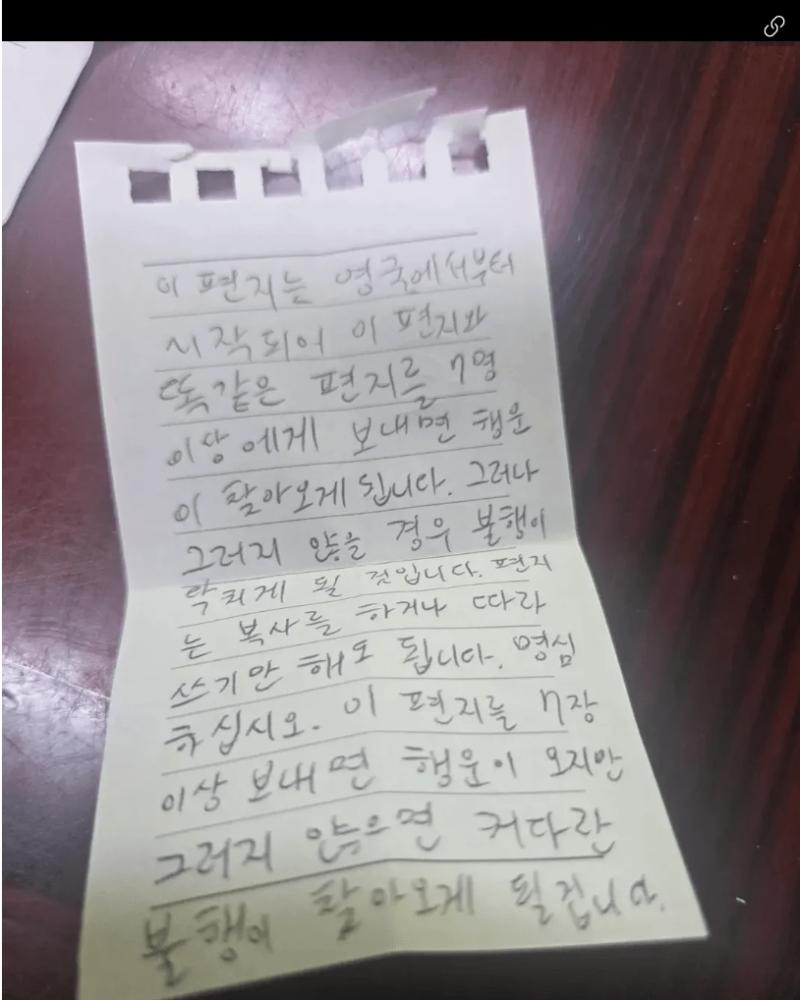 이 편지는 영국에서부터
시작되어 이 편지와
똑같은 편지를 7명
이상에게 보내면 행운
이 찾아오게 됩니다. 그러나
그러지 않을 경우 불행이
닥치게 될 것입니다. 편지
는 복사를 하거나 따라
쓰기만 해도 됩니다. 명심
하십시오. 이 편지를 7장
이상 보내면 행운이 오지만
그러지 않으면 커다란
불행이 찾아오게 될겁니다.